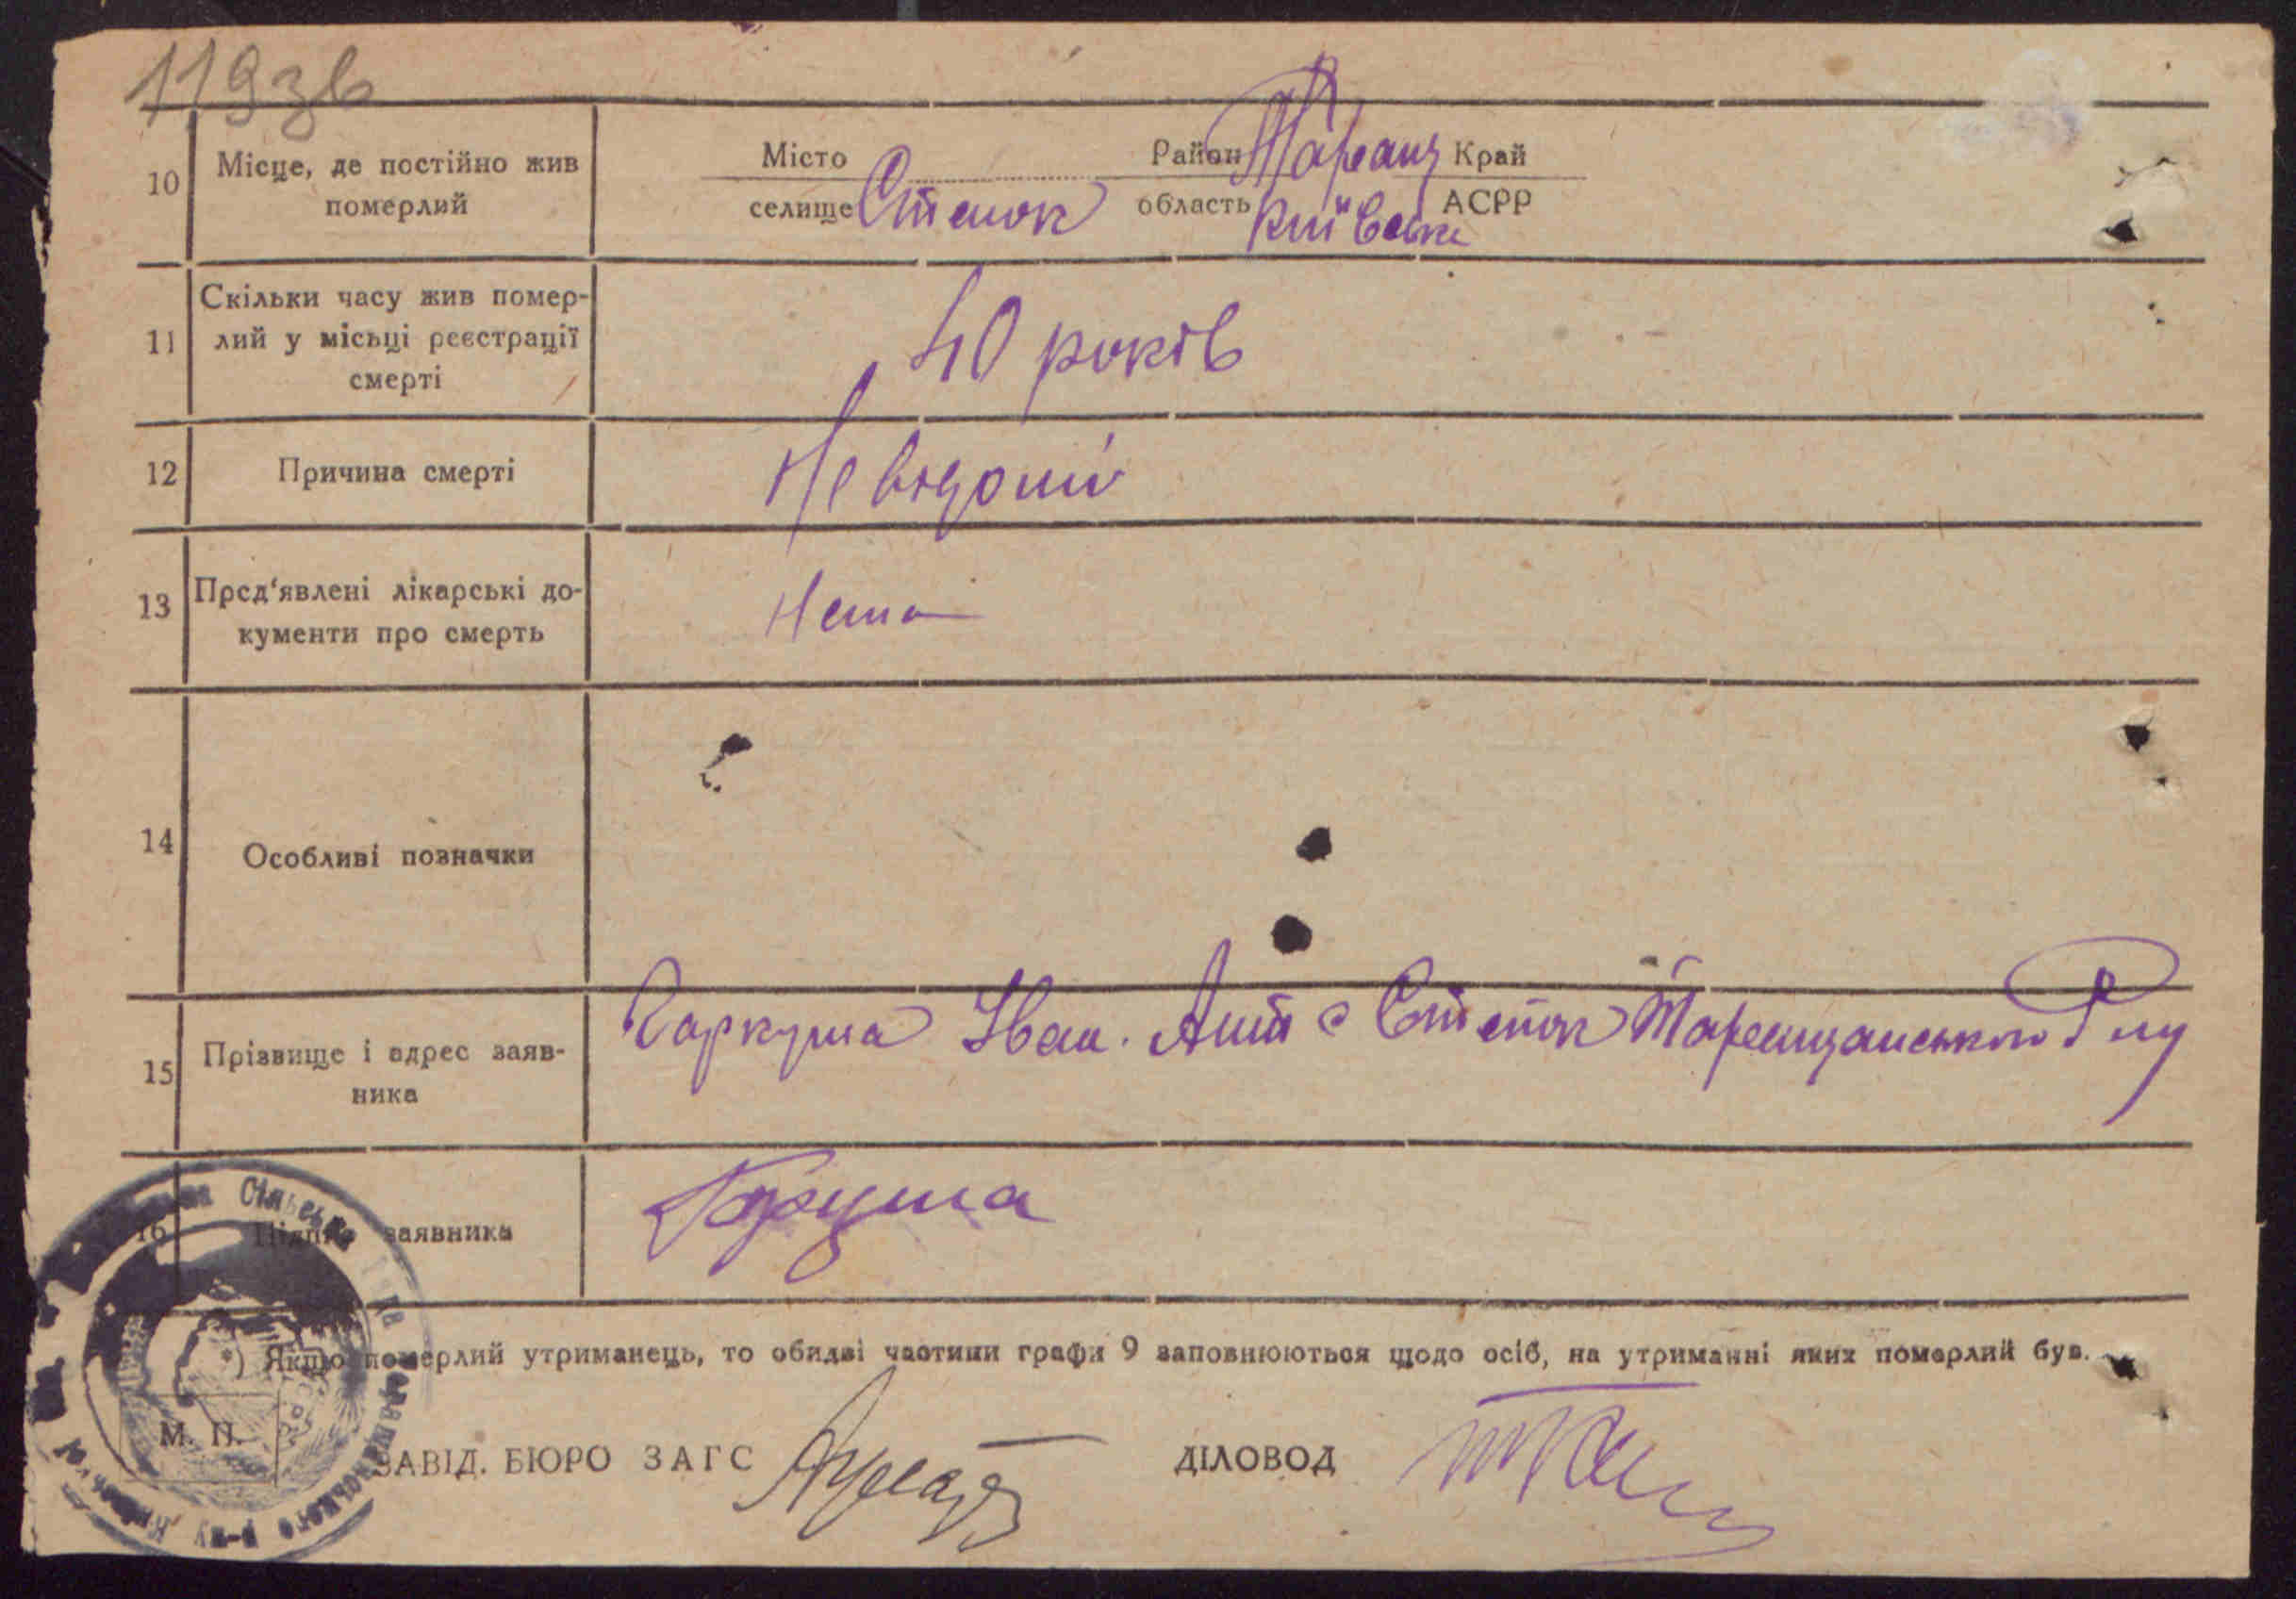 119зв
10 Місце, де постійно жив померлий
Місто Район Тараащ Край
селище Стенок область Київська АСРР
11 Скільки часу жив помер-
лий у місьці реєстрації
смерті
40 років
12 Причина смерті Невідомі
13 Пред'явлені лікарські до-
кументи про смерть
Нема
14 Особливі позначки
15 Прізвище і адрес заяв-
ника
Гаркуша Іван. Ант с Стенок Таращанського Р ну
16 Підпис заявника Гаркуша
Сільська
*) Якщо померлий утриманець, то обидві частини графи 9 заповнюються щодо осіб, на утриманні яких померлий був.
М. П.
ЗАВІД. БЮРО ЗАГС ДІЛОВОД